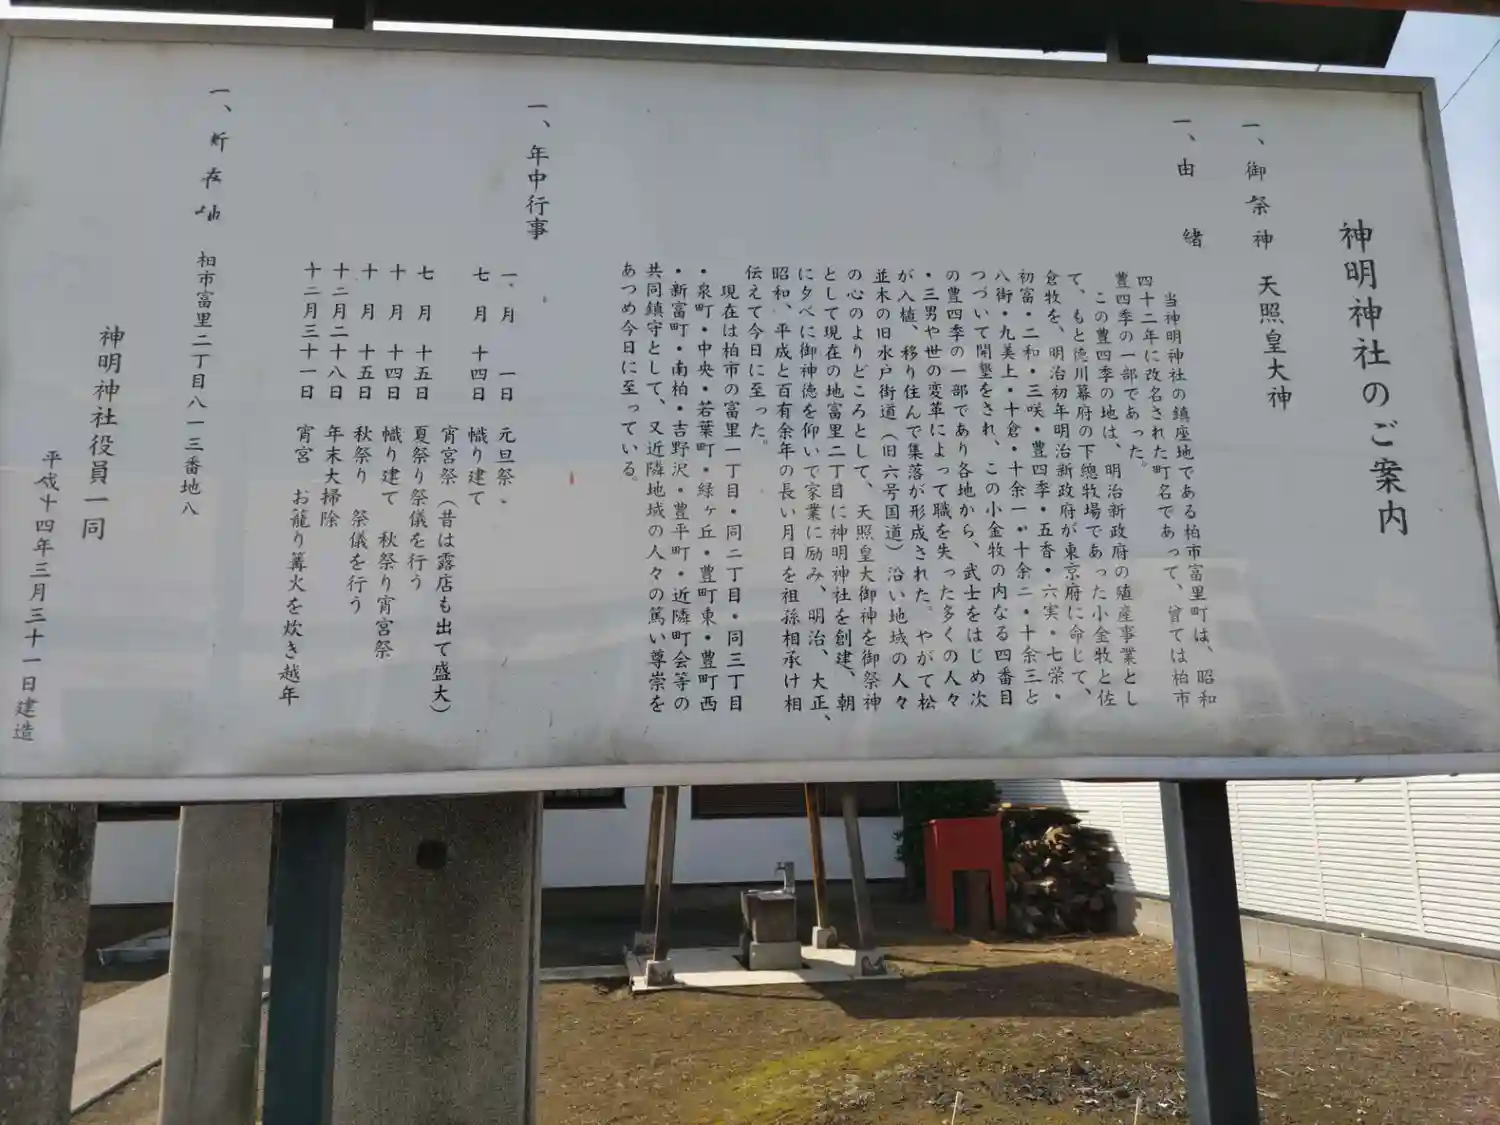 神明神社のご案内
一、御祭神 天照皇大神
一、由 緒
当神明神社の鎮座地である柏市富里町は、昭和
四十二年に改名された町名であって、曾ては柏市
豊四季の一部であった。
この豊四季の地は、明治新政府の殖産事業とし
て、もと徳川幕府の下總牧場であった小金牧と佐
倉牧を、明治初年明治新政府が東京府に命じて、
初富・二和・三咲・豊四季・五香・六実・七栄・
八街・九美上・十倉・十余一・十余二・十余三と
つづいて開墾をされ、この小金牧の内なる四番目
の豊四季の一部であり各地から、武士をはじめ次
・三男や世の変革によって職を失った多くの人々
が入植、移り住んで集落が形成された。やがて松
並木の旧水戸街道（旧六号国道）沿い地域の人々
の心のよりどころとして、天照皇大御神を御祭神
として現在の地富里二丁目に神明神社を創建、朝
に夕べに御神徳を仰いで家業に励み、明治、大正、
昭和、平成と百有余年の長い月日を祖孫相承け相
伝えて今日に至った。
現在は柏市の富里一丁目・同二丁目・同三丁目
・泉町・中央・若葉町・緑ヶ丘・豊町東・豊町西
・新富町・南柏・吉野沢・豊平町・近隣町会等の
共同鎮守として、又近隣地域の人々の篤い尊崇を
あつめ今日に至っている。
一、年中行事
一、月 一日 元旦祭、
七 月 十四日 幟り建て
宵宮祭（昔は露店も出て盛大）
七 月 十五日 夏祭り祭儀を行う
十 月 十四日 幟り建て 秋祭り宵宮祭
十 月 十五日 秋祭り 祭儀を行う
十二月二十八日 年末大掃除
十二月三十一日 宵宮 お籠り篝火を炊き越年
一、所在地 柏市富里二丁目八一三番地八
神明神社役員一同
平成十四年三月三十一日建造